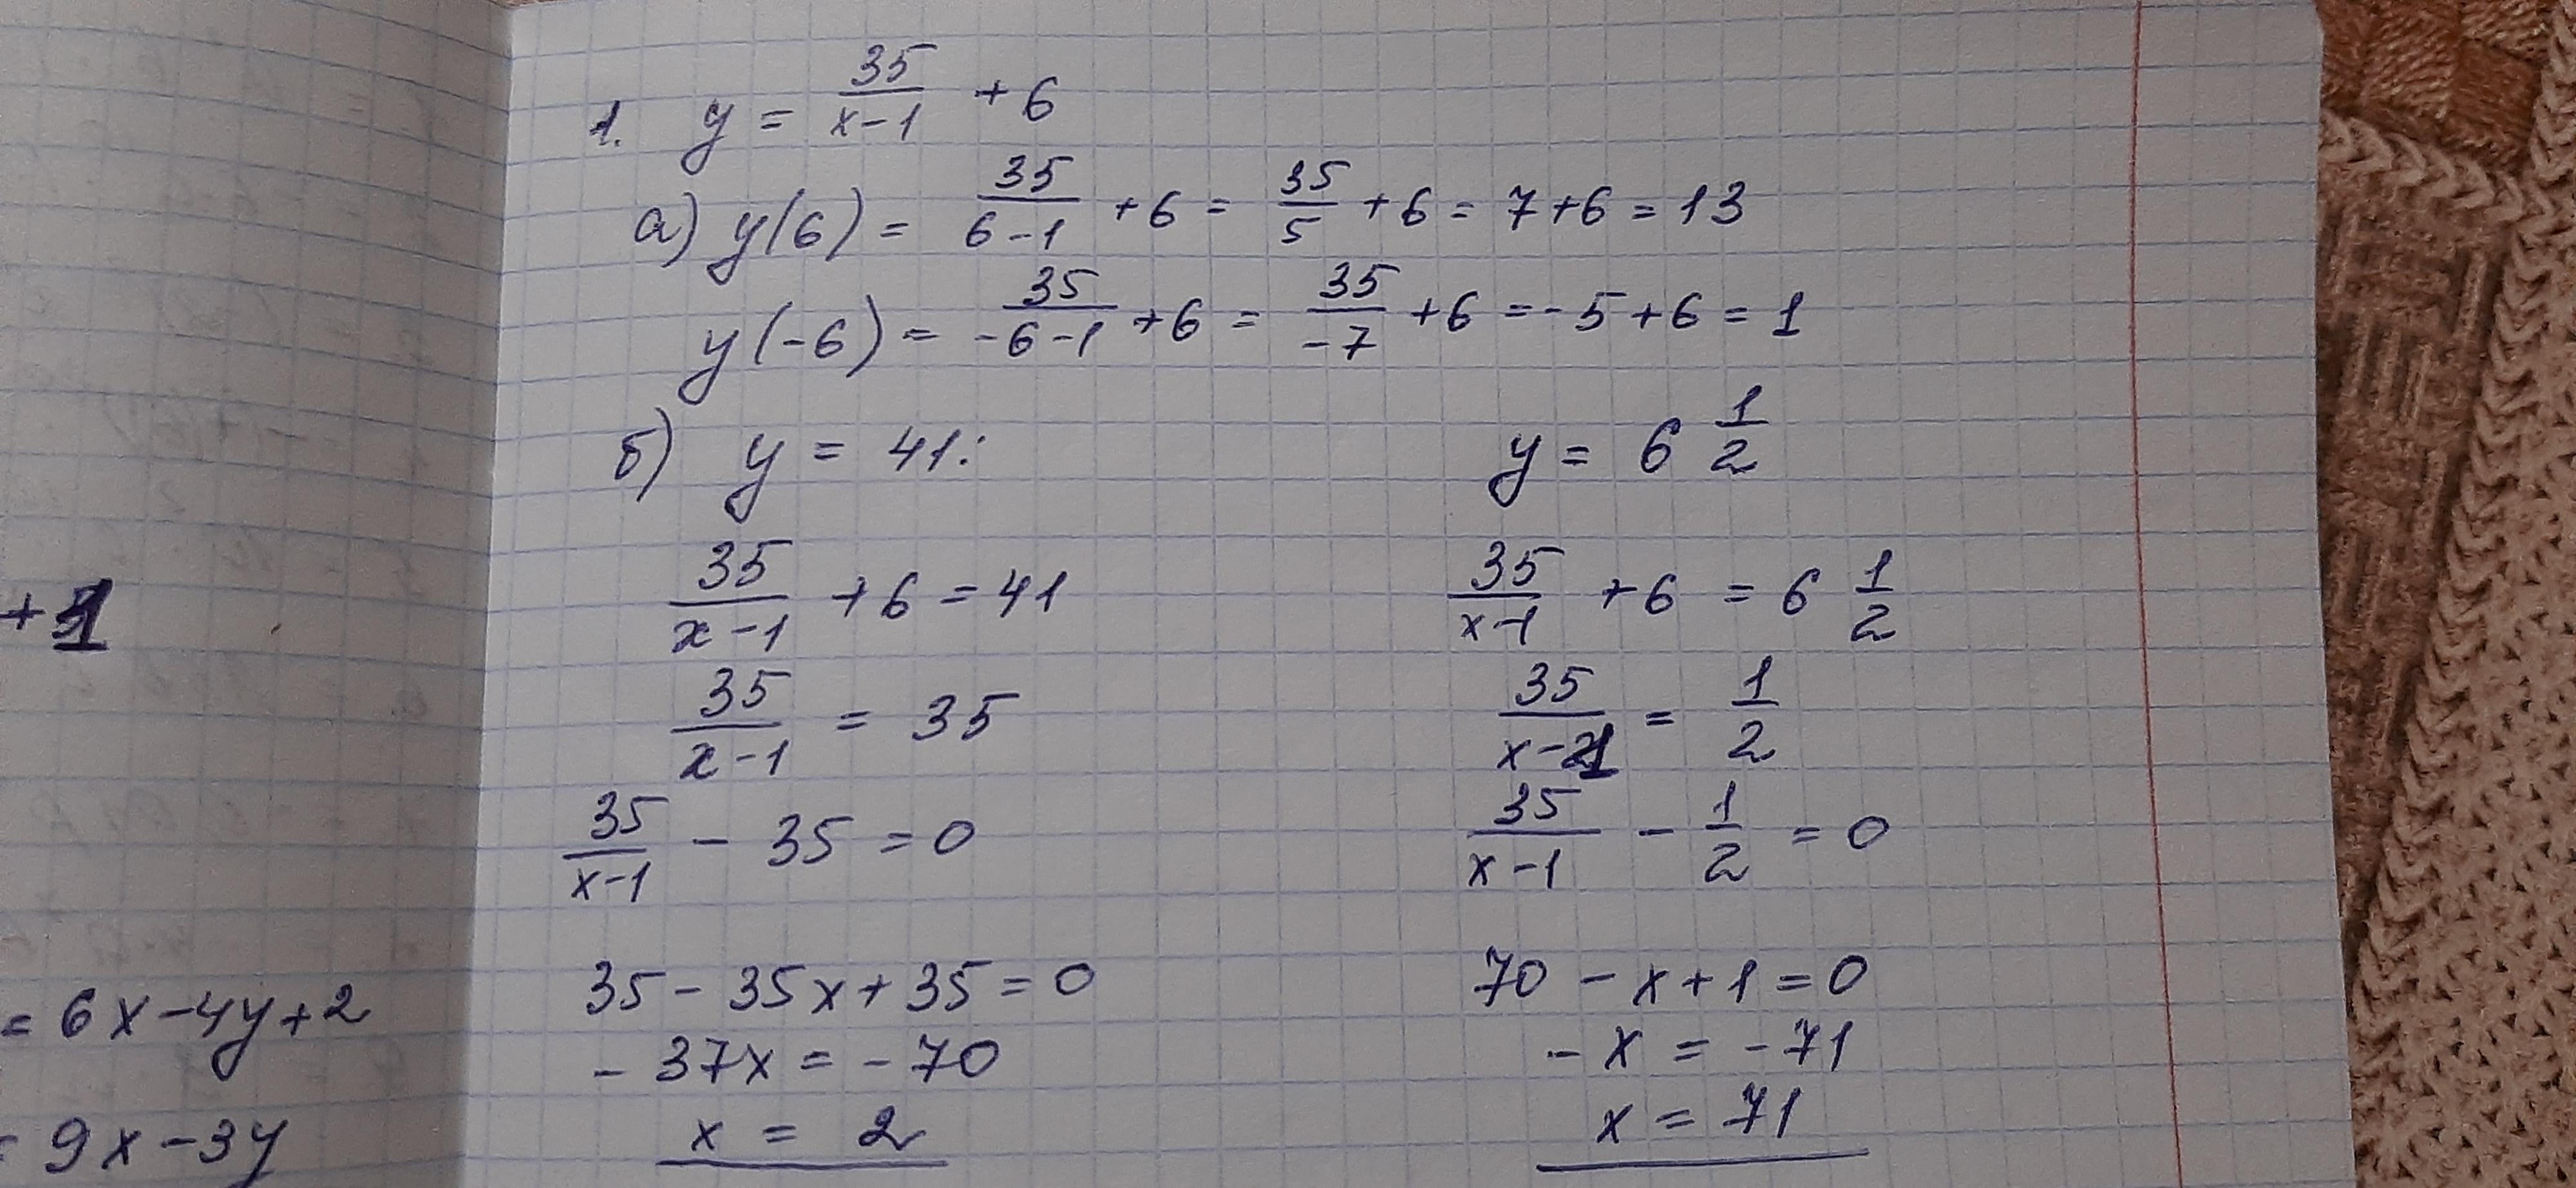 1. y = 35/(x-1) + 6
а) y(6) = 35/(6-1) + 6 = 35/5 + 6 = 7 + 6 = 13
y(-6) = 35/(-6-1) + 6 = 35/(-7) + 6 = -5 + 6 = 1
б) y = 41:
35/(x-1) + 6 = 41
35/(x-1) = 35
35/(x-1) - 35 = 0
35 - 35x + 35 = 0
- 37x = - 70
x = 2
y = 6 1/2
35/(x-1) + 6 = 6 1/2
35/(x-1) = 1/2
35/(x-1) - 1/2 = 0
70 - x + 1 = 0
- x = - 71
x = 71
+ 1
= 6x - 4y + 2
= 9x - 3y